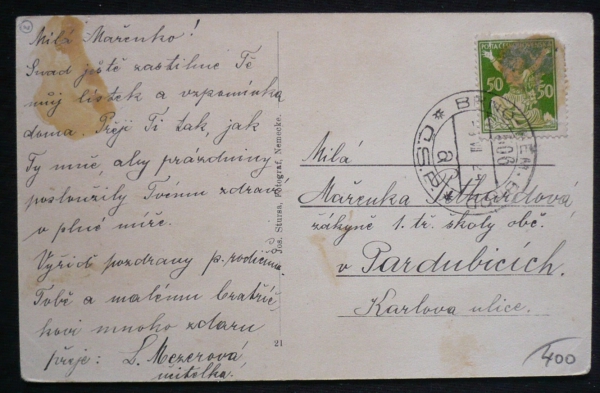 Milá Mařenko!
Snad ještě zastihne Tě
můj lístek a vzpomínka
doma. Přeji Ti tak, jak
Ty mně, aby prázdniny
posloužily Tvému zdraví
v plné míře.
Vyřiď pozdravy p. rodičům.
Tobě a malému bratříč-
kovi mnoho zdaru
přeje: L. Mezerová
učitelka.
Jos. Sturas, Fotograf, Nemecke.
21
50 50
Milá
Mařenka
žákyně 1. tř. školy obč.
v Pardubicích.
Karlova ulice.
400